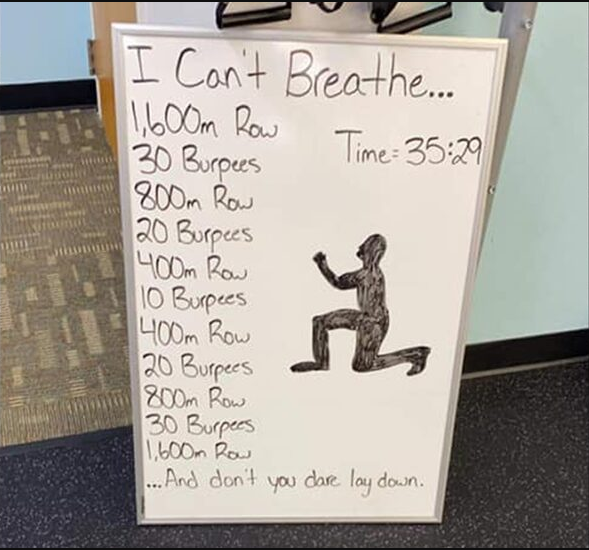 I Can't Breathe...
1,600m Row
Time= 35:29
30 Burpees
800m Row
20 Burpees
400m Row
10 Burpees
400m Row
20 Burpees
800m Row
30 Burpees
1,600m Row
...And don't you dare lay down.